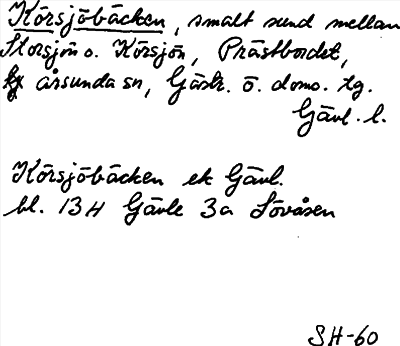 Körsjöbäcken, smalt sund mellan
Storsjön o. Körsjön, Prästbordet,
Årsunda sn, Gästr. ö. doms. tg.
Gävl. l.
Körsjöbäcken ek Gävl.
bl. 13H Gävle 3a Lövåsen
SH-60